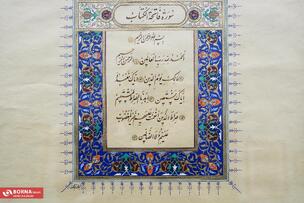 سورة فاتحة الکتاب
بسم الله الرحمن الرحیم
الحمد لله رب العالمین الرحمن الرحیم
مالک یوم الدین ایاک نعبد و
ایاک نستعین اهدنا الصراط المستقیم
صراط الذین انعمت علیهم غیر المغضوب
علیهم و لا الضالین
BORNA